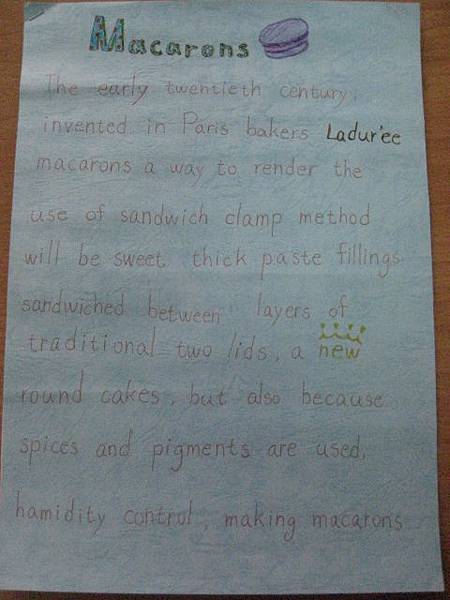 Macarons
The early twentieth century,
invented in Paris bakers Ladur'ee
macarons a way to render the
use of sandwich clamp method
will be sweet thick paste fillings
sandwiched between layers of
traditional two lids, a new
round cakes, but also because
spices and pigments are used,
hamidity control, making macarons